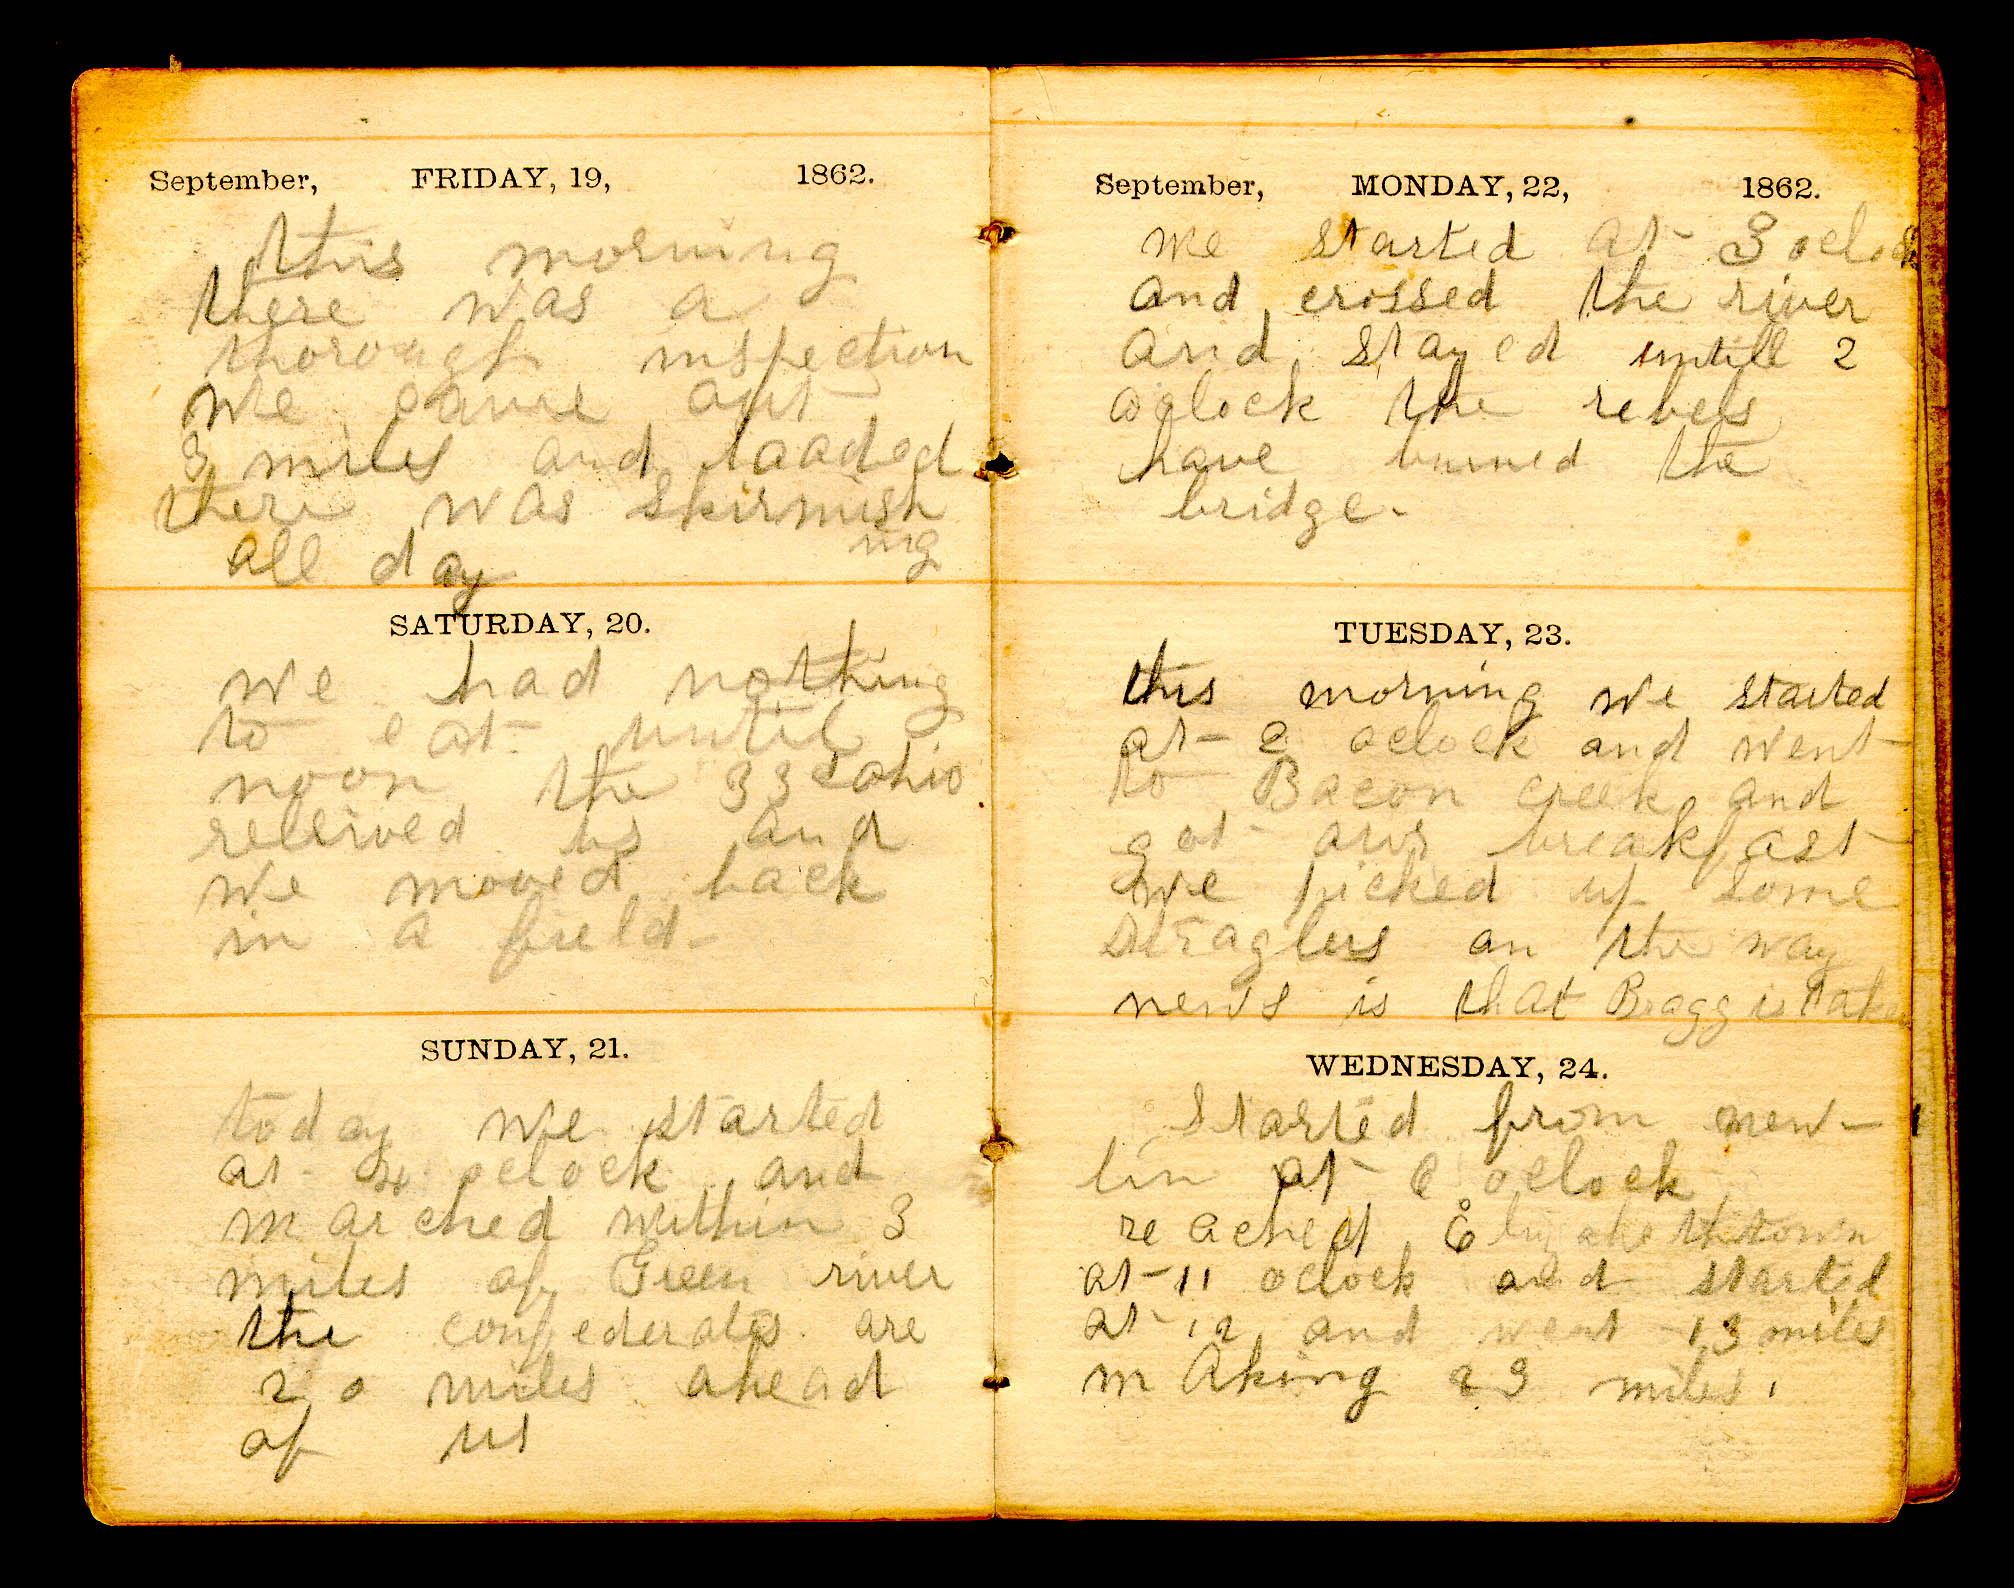 September, FRIDAY, 19, 1862.
this morning
there was a
thorough inspection
we came out
3 miles and loaded
there was skirmish
ing
all day
SATURDAY, 20.
we had nothing
to eat until
noon the 33d ohio
releived us and
we moved back
in a field-
SUNDAY, 21.
today we started
at 4 oclock and
marched within 3
miles of Green river
the confederates are
20 miles ahead
of us
September, MONDAY, 22, 1862.
we started at 3 oclock
and crossed the river
and stayed untill 2
oclock the rebels
have burned the
bridge-
TUESDAY, 23.
this morning we started
at 2 oclock and went
to Bacon creek and
got our breakfast
we picked up some
straglers on the way
news is that Bragg is take
WEDNESDAY, 24.
Started from new-
lin at 6 oclock
reached Elizabethtown
at 11 oclock and started
at 12 and went 13 miles
making 23 miles.